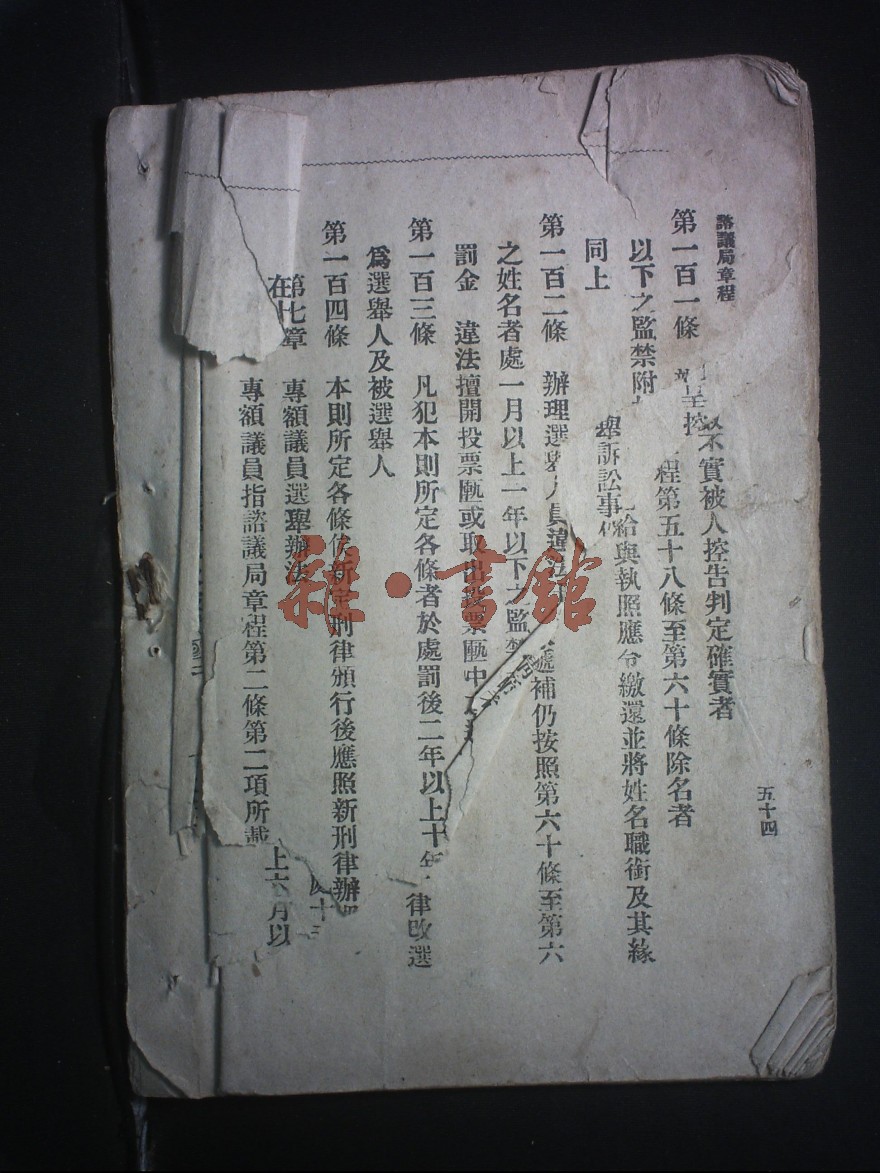 諮議局章程
五十四
不實被人控告判定確實者
第一百一條
程第五十八條至第六十條除名者
以下之監禁附
給與執照應令繳還並將姓名職銜及其緣
同上
訴訟事
第一百二條 辦理選舉人員違法
遞補仍按照第六十條至第六
之姓名者處一月以上一年以下之監禁
罰金 違法擅開投票匭或取出投票匭中
第一百三條 凡犯本則所定各條者於處罰後二年以上十年
律改選
為選舉人及被選舉人
第一百四條 本則所定各條俟新定刑律頒行後應照新刑律辦
第七章 專額議員選舉辦法
上六月以
專額議員指諮議局章程第二條第二項所載
雜·書館